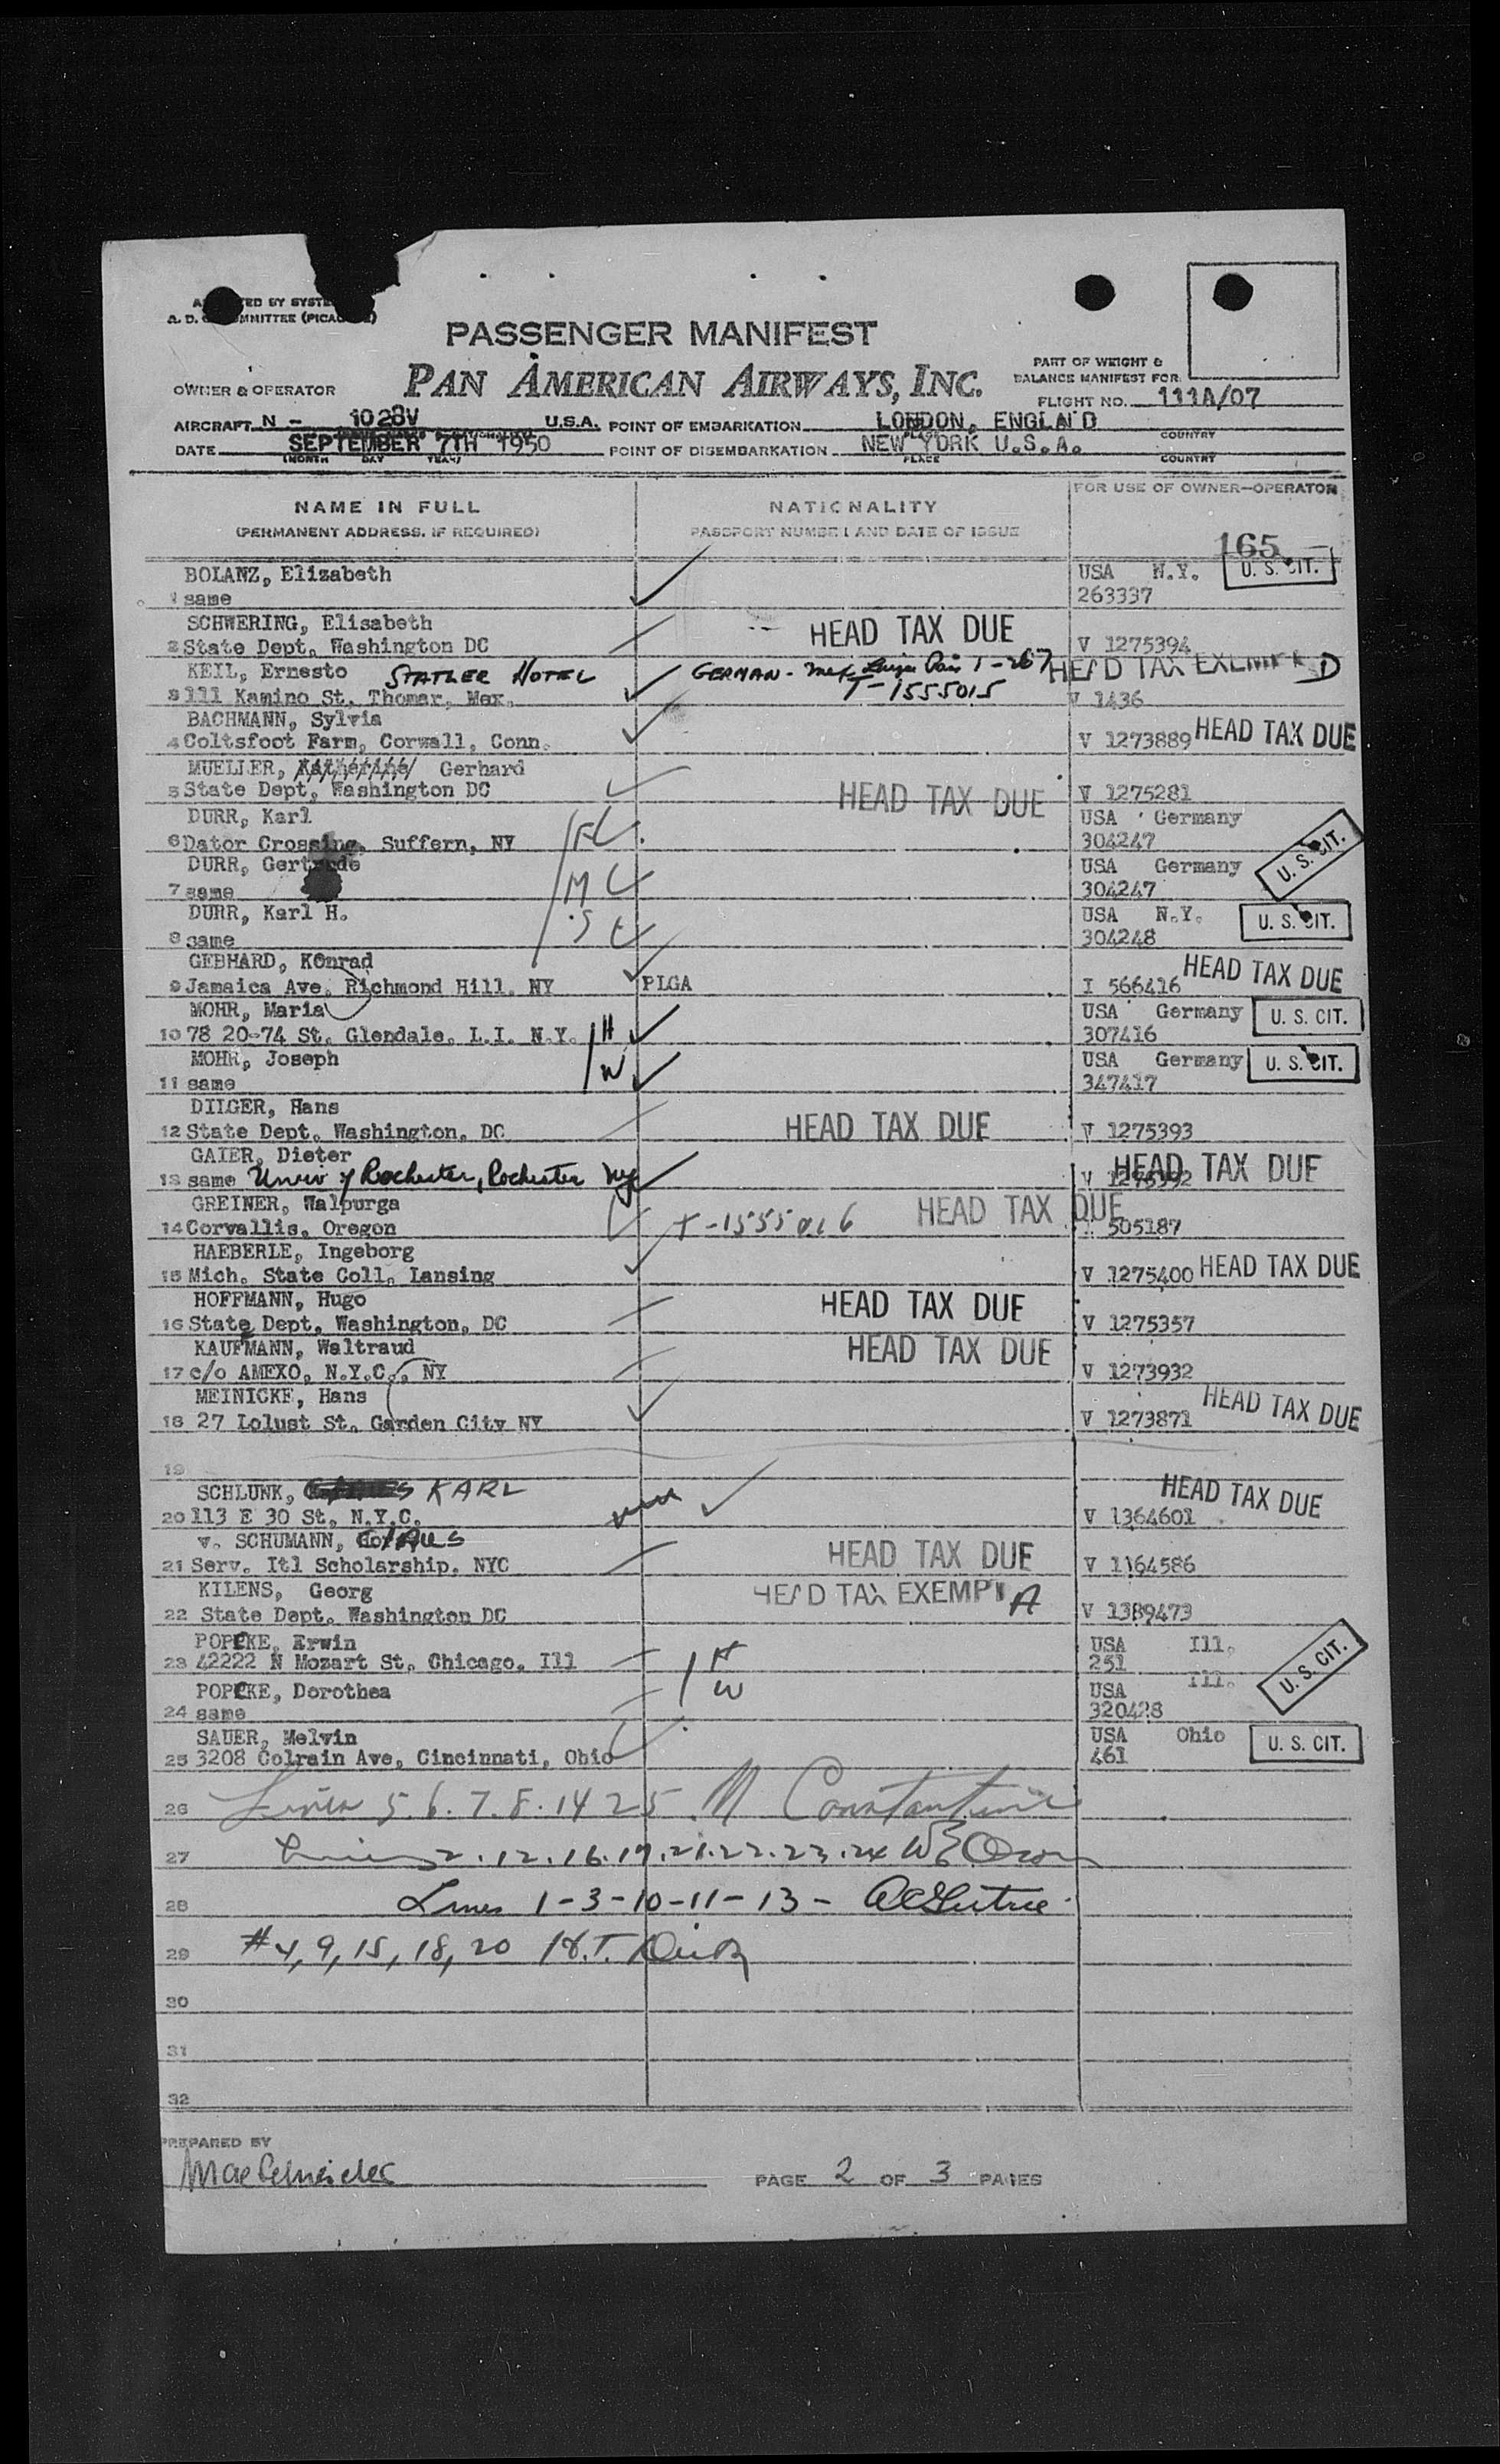 PASSENGER MANIFEST
PAN AMERICAN AIRWAYS, INC.
PART OF WEIGHT &
BALANCE MANIFEST FOR
OWNER & OPERATOR
FLIGHT NO. 111A/07
AIRCRAFT N - 1028V U.S.A. POINT OF EMBARKATION LONDON, ENGLAND
COUNTRY
DATE SEPTEMBER 7TH 1950 POINT OF DISEMBARKATION NEW YORK U.S.A.
(MONTH DAY YEAR) PLACE COUNTRY
NAME IN FULL NATIONALITY FOR USE OF OWNER—OPERATOR
(PERMANENT ADDRESS, IF REQUIRED) PASSPORT NUMBER AND DATE OF ISSUE
165
BOLANZ, Elizabeth USA N.Y. U. S. CIT.
1 same 263337
SCHWERING, Elisabeth HEAD TAX DUE
2 State Dept, Washington DC V 1275394
KEIL, Ernesto STATLER HOTEL GERMAN - HEAD TAX EXEMPT D
3 111 Kamino St, Thomar, Mex. T-1555015 V 1436
BACHMANN, Sylvia
4 Coltsfoot Farm, Corwall, Conn. V 1273889 HEAD TAX DUE
MUELLER, Katherine Gerhard
5 State Dept, Washington DC HEAD TAX DUE V 1275281
DURR, Karl USA Germany
6 Dator Crossing, Suffern, NY 304247
DURR, Gertrude USA Germany U. S. CIT.
7 same M 304247
DURR, Karl H. USA N.Y. U. S. CIT.
8 same S 304248
GEBHARD, KOnrad
9 Jamaica Ave, Richmond Hill, NY PLGA I 566416 HEAD TAX DUE
MOHR, Maria USA Germany U. S. CIT.
10 78 20-74 St, Glendale, L.I. N.Y. H 307416
MOHR, Joseph USA Germany U. S. CIT.
11 same W 347417
DILGER, Hans
12 State Dept. Washington, DC HEAD TAX DUE V 1275393
GAIER, Dieter HEAD TAX DUE
13 same Univ of Rochester, Rochester NY V
GREINER, Walpurga HEAD TAX DUE
14 Corvallis, Oregon 505187
HAEBERLE, Ingeborg
15 Mich. State Coll, Lansing V 1275400 HEAD TAX DUE
HOFFMANN, Hugo HEAD TAX DUE
16 State Dept, Washington, DC V 1275357
KAUFMANN, Waltraud HEAD TAX DUE
17 c/o AMEXO, N.Y.C., NY V 1273932
MEINICKE, Hans
18 27 Lolust St, Garden City NY V 1273871 HEAD TAX DUE
19
SCHLUNK, KARL HEAD TAX DUE
20 113 E 30 St, N.Y.C. V 1364601
v. SCHUMANN, HEAD TAX DUE
21 Serv. Itl Scholarship, NYC V 1164586
KILENS, Georg HEAD TAX EXEMPT A
22 State Dept. Washington DC V 1389473
POPCKE, Erwin USA Ill.
23 42222 N Mozart St, Chicago, Ill H 251
POPCKE, Dorothea W USA Ill. U. S. CIT.
24 same 320428
SAUER, Melvin USA Ohio U. S. CIT.
25 3208 Colrain Ave, Cincinnati, Ohio 461
26 Lines 5.6.7.8.14 25
27 Lines 2.12.16.17.21.22.23.24
28 Lines 1-3-10-11-13-
29 #4, 9, 15, 18, 20 H.T.
30
31
32
PREPARED BY
Mae Schneider PAGE 2 OF 3 PAGES